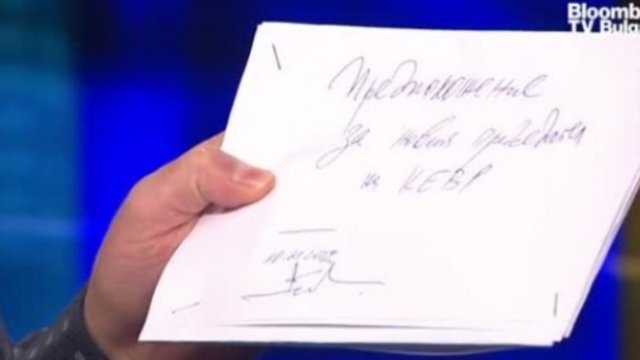 Bloomb
TV Bulga
Предположение
за новия председател
на КЕВР